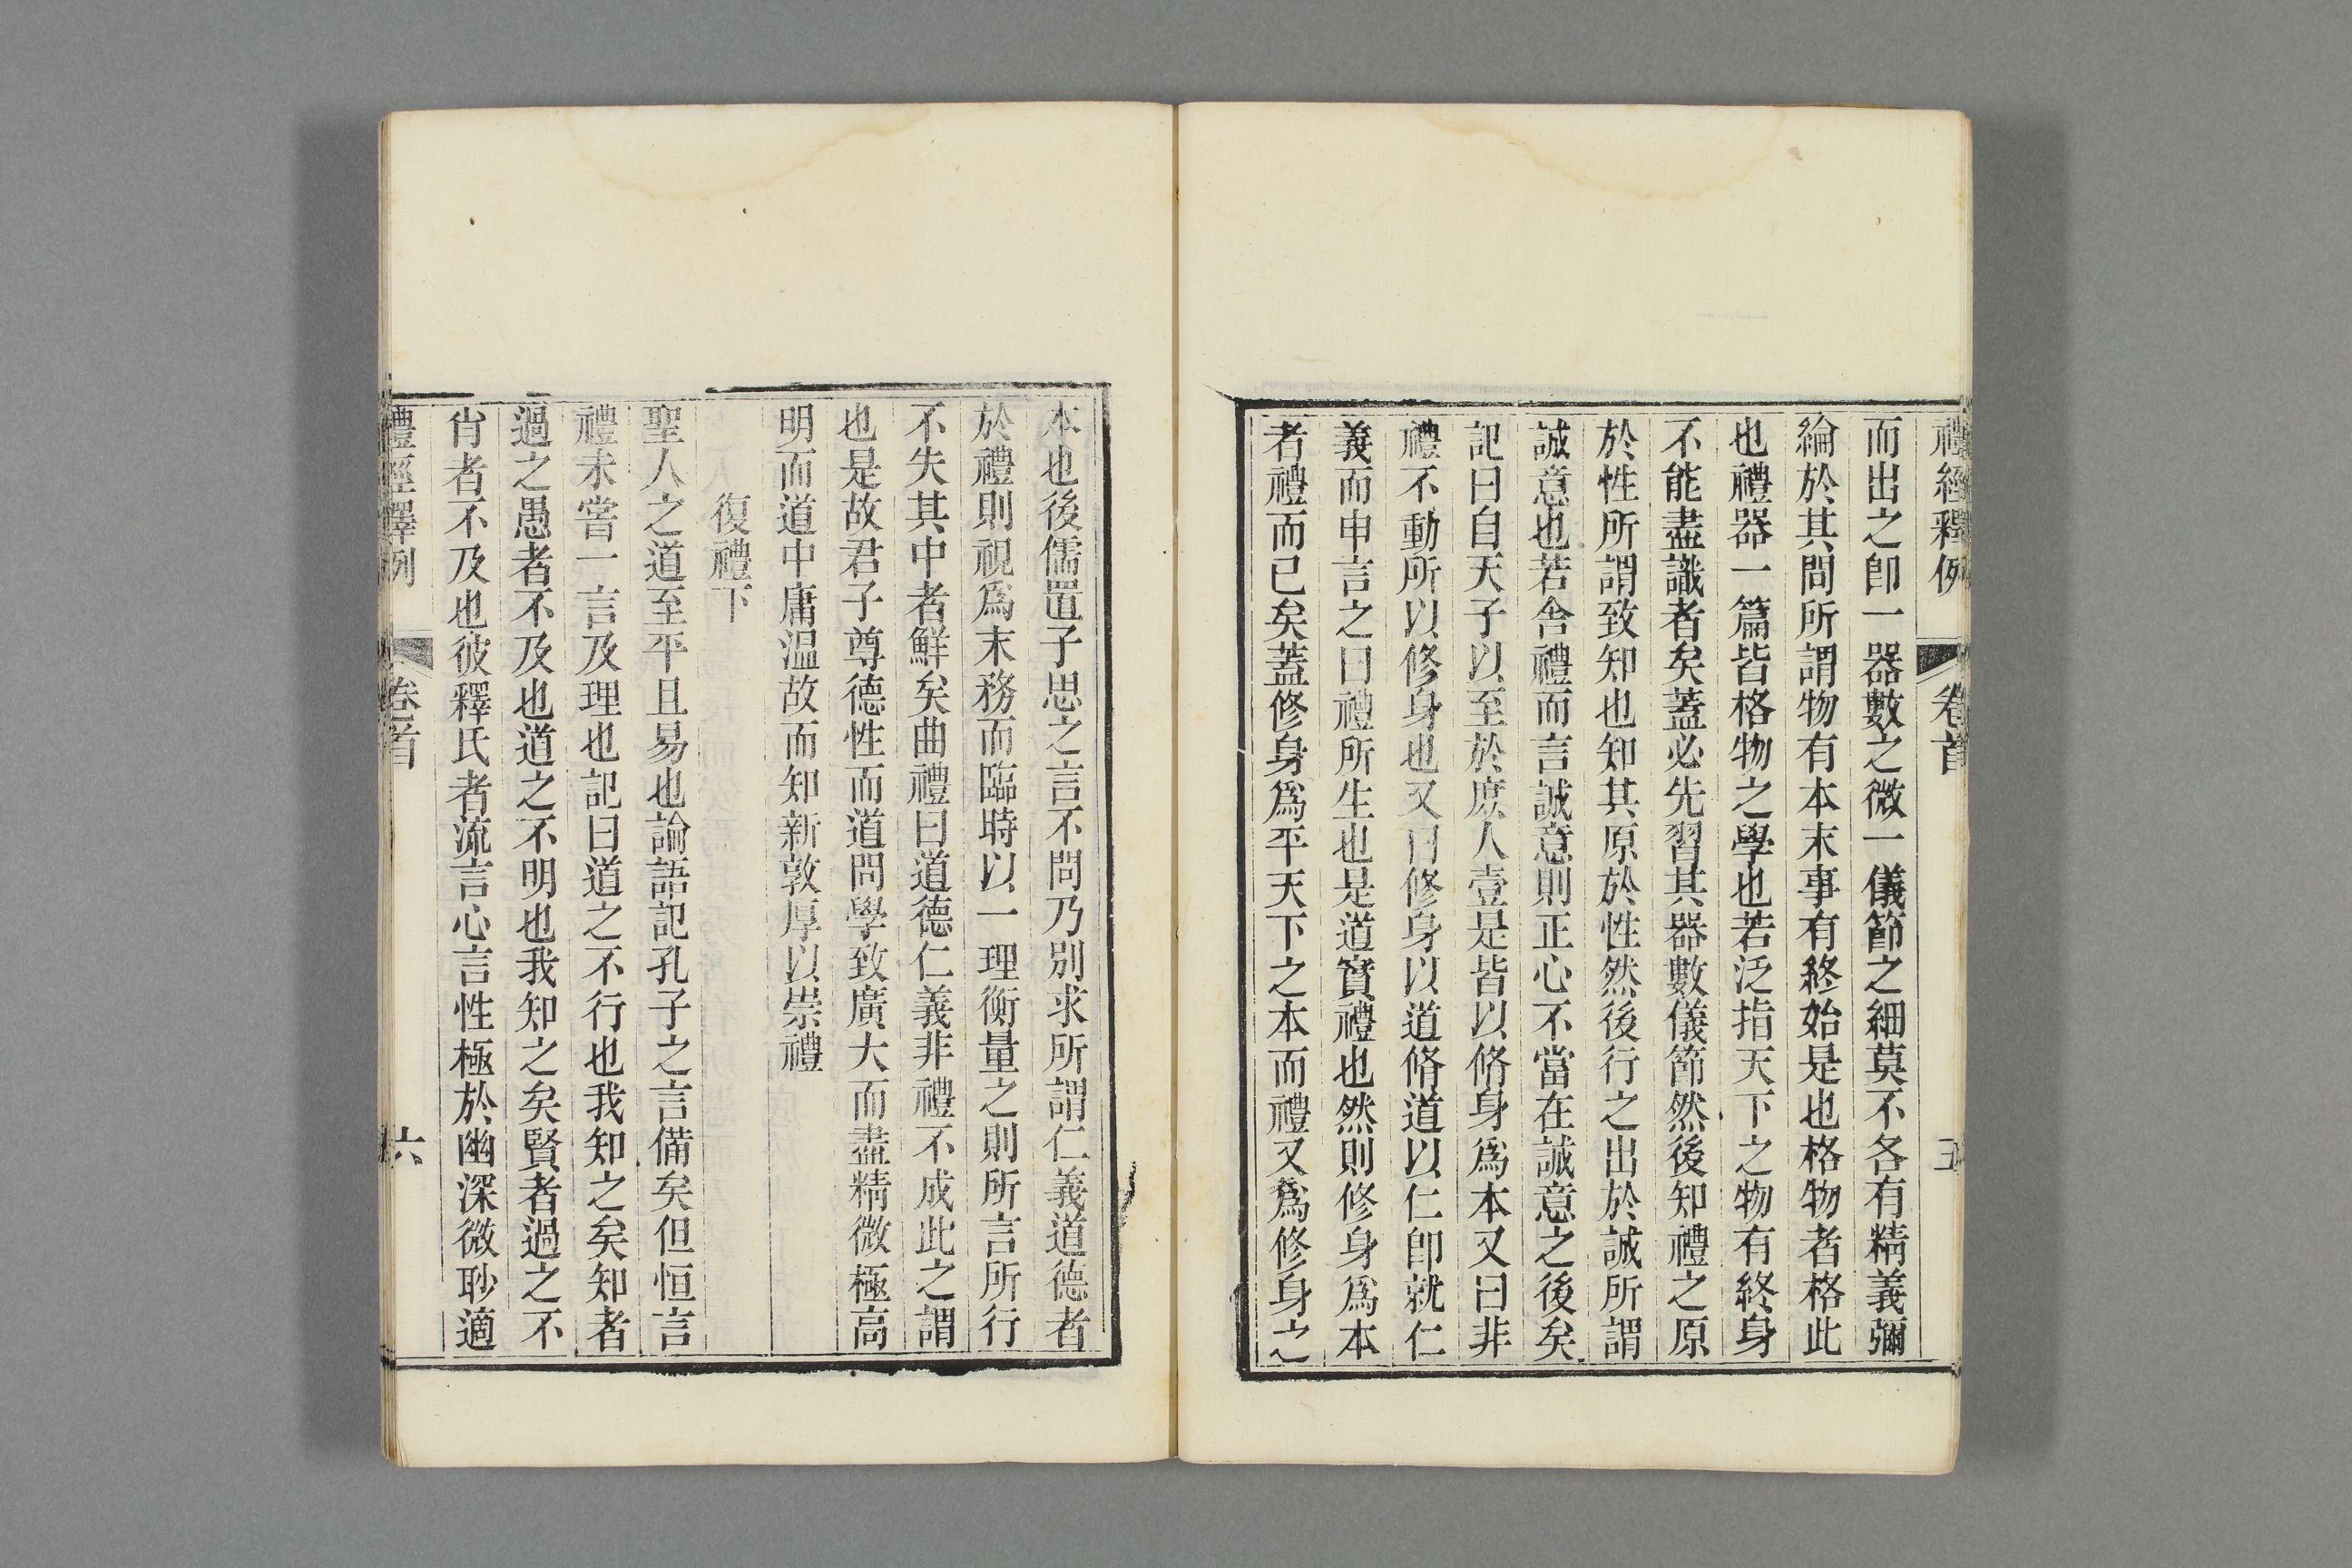 禮經釋例 卷首 五
而出之卽一器數之微一儀節之細莫不各有精義彌
綸於其間所謂物有本末事有終始是也格物者格此
也禮器一篇皆格物之學也若泛指天下之物有終身
不能盡識者矣蓋必先習其器數儀節然後知禮之原
於性所謂致知也知其原於性然後行之出於誠所謂
誠意也若舍禮而言誠意則正心不當在誠意之後矣
記曰自天子以至於庶人壹是皆以脩身爲本又曰非
禮不動所以修身也又曰修身以道脩道以仁卽就仁
義而申言之曰禮所生也是道實禮也然則修身爲本
者禮而已矣蓋修身爲平天下之本而禮又爲修身之
本也後儒置子思之言不問乃別求所謂仁義道德者
於禮則視爲末務而臨時以一理衡量之則所言所行
不失其中者鮮矣曲禮曰道德仁義非禮不成此之謂
也是故君子尊德性而道問學致廣大而盡精微極高
明而道中庸溫故而知新敦厚以崇禮
復禮下
聖人之道至平且易也論語記孔子之言備矣但恒言
禮未嘗一言及理也記曰道之不行也我知之矣知者
過之愚者不及也道之不明也我知之矣賢者過之不
肖者不及也彼釋氏者流言心言性極於幽深微眇適
禮經釋例 卷首 六